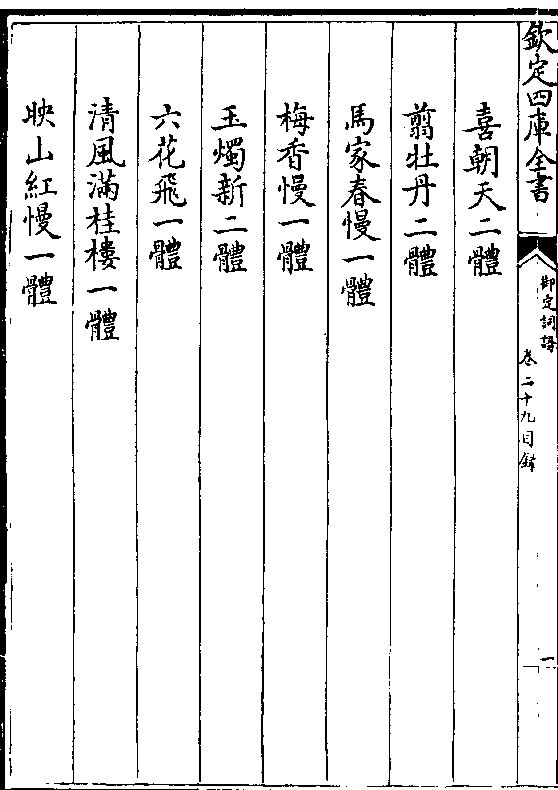 欽定四庫全書
御定詞譜
卷二十九目錄
一
喜朝天二體
翦牡丹二體
馬家春慢一體
梅香慢一體
玉燭新二體
六花飛一體
清風滿桂樓一體
映山紅慢一體